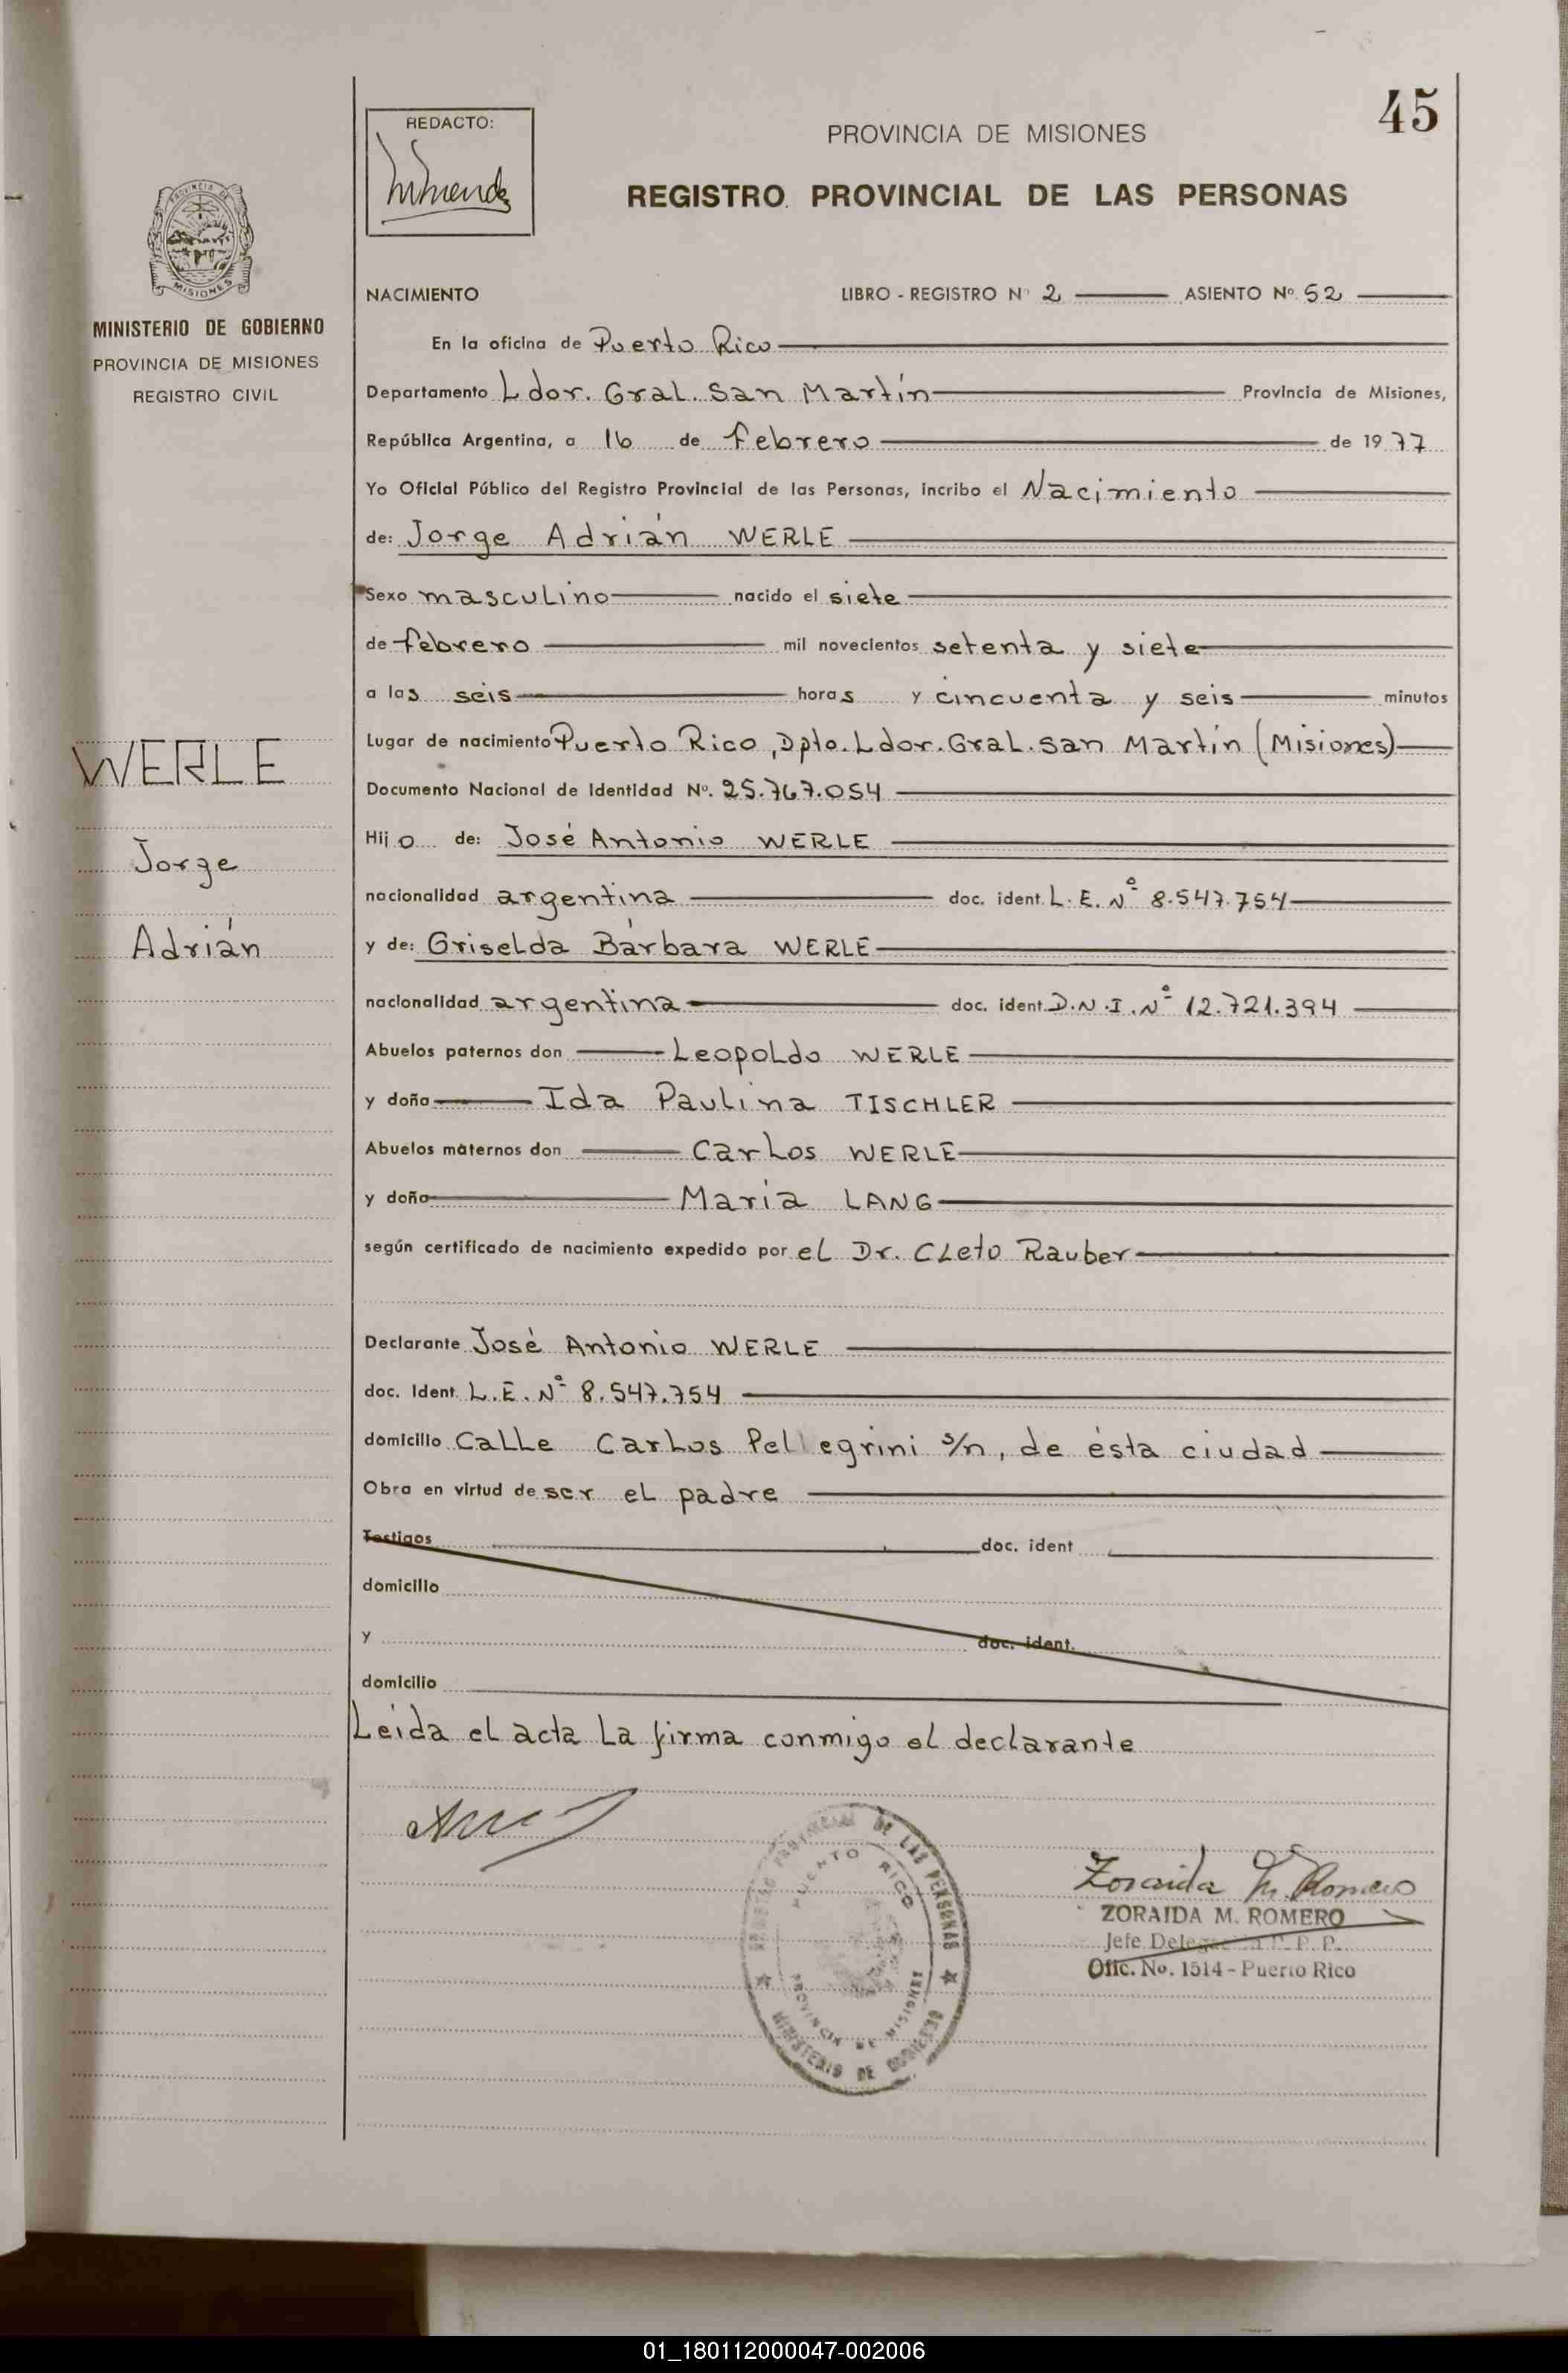 45
REDACTO:
PROVINCIA DE MISIONES
REGISTRO PROVINCIAL DE LAS PERSONAS
PROVINCIA DE
MISIONES
MINISTERIO DE GOBIERNO
PROVINCIA DE MISIONES
REGISTRO CIVIL
NACIMIENTO LIBRO - REGISTRO Nº 2 ASIENTO Nº 52
En la oficina de Puerto Rico
Departamento Ldor. Gral. San Martín Provincia de Misiones,
República Argentina, a 16 de febrero de 1977
Yo Oficial Público del Registro Provincial de las Personas, incribo el Nacimiento
de: Jorge Adrián WERLE
Sexo masculino nacido el siete
de febrero mil novecientos setenta y siete
a las seis horas y cincuenta y seis minutos
Lugar de nacimiento Puerto Rico, Dpto. Ldor. Gral. San Martín (Misiones)
Documento Nacional de Identidad Nº. 25.767.054
Hijo de: José Antonio WERLE
nacionalidad argentina doc. ident. L.E. Nº 8.547.754
y de: Griselda Bárbara WERLE
nacionalidad argentina doc. ident. D.N.I. Nº 12.721.394
Abuelos paternos don Leopoldo WERLE
y doña Ida Paulina TISCHLER
Abuelos maternos don Carlos WERLE
y doña María LANG
según certificado de nacimiento expedido por el Dr. Cleto Rauber
Declarante José Antonio WERLE
doc. Ident. L.E. Nº 8.547.754
domicilio Calle Carlos Pellegrini s/n, de ésta ciudad
Obra en virtud de ser el padre
Testigos doc. ident
domicilio
y doc. ident.
domicilio
Leída el acta la firma conmigo el declarante
WERLE
Jorge
Adrián
REGISTRO PROVINCIAL DE LAS PERSONAS
PUERTO RICO
PROVINCIA DE MISIONES
MINISTERIO DE GOBIERNO
Zoraida M. Romero
ZORAIDA M. ROMERO
Jefe R. P. P.
Ofic. No. 1514 - Puerto Rico
01_180112000047-002006